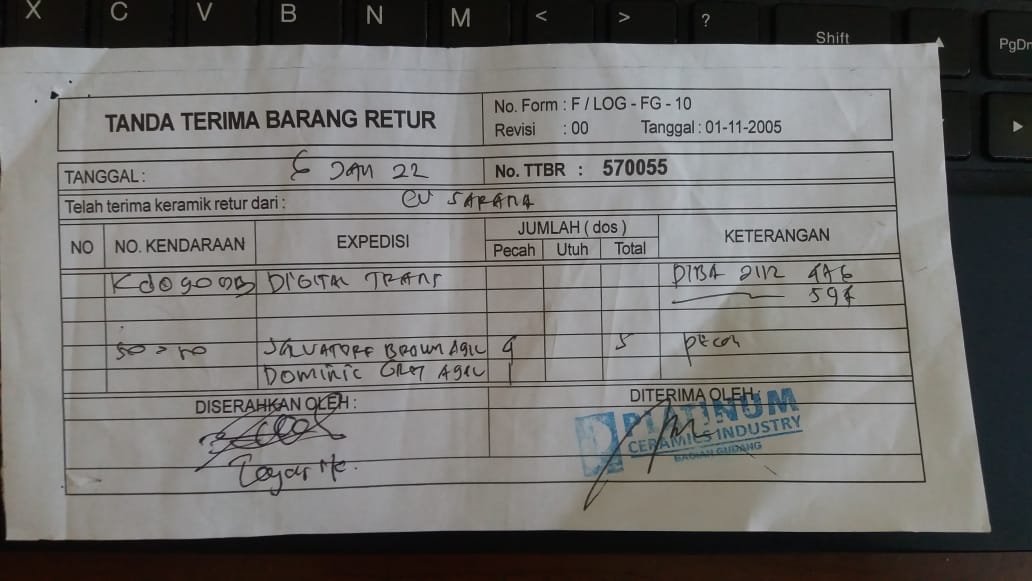 X C V B N M < > ?
Shift
PgDn
TANDA TERIMA BARANG RETUR
No. Form : F / LOG - FG - 10
Revisi : 00 Tanggal : 01-11-2005
TANGGAL : 6 JAN 22
No. TTBR : 570055
Telah terima keramik retur dari : CV SARANA
NO NO. KENDARAAN EXPEDISI JUMLAH ( dos ) KETERANGAN
Pecah Utuh Total
DIGITAL TRANS DIBA 2112
50 x 50 SALVATORE BROWN A9IL 4 5 pecah
DOMINIC GREY 1
DISERAHKAN OLEH :
DITERIMA OLEH :
PLATINUM
CERAMICS INDUSTRY
BAGIAN GUDANG